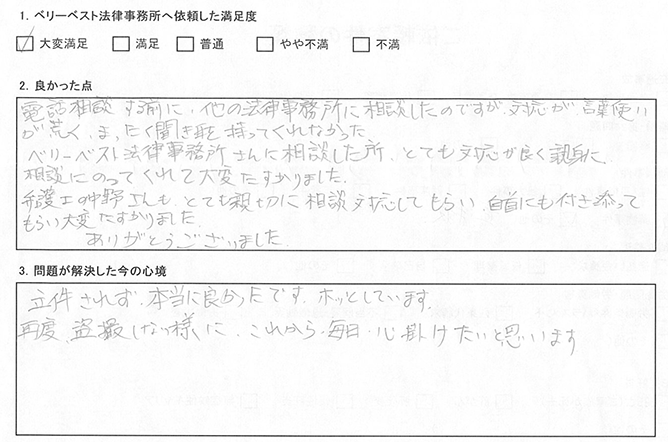 1. ベリーベスト法律事務所へ依頼した満足度
大変満足 満足 普通 やや不満 不満
2. 良かった点
電話相談する前に、他の法律事務所に相談したのですが、対応が、言葉使い
が荒く、まったく聞き耳を持ってくれなかった。
ベリーベスト法律事務所さんに相談した所、とても対応が良く親身に、
相談にのってくれて大変たすかりました。
弁護士の中野さんも、とても親切に相談対応してもらい、自首にも付き添って
もらい大変たすかりました。
ありがとうございました。
3. 問題が解決した今の心境
立件されず、本当に良かったです。ホッとしています。
再度、盗撮しない様に、これから、毎日、心掛けたいと思います